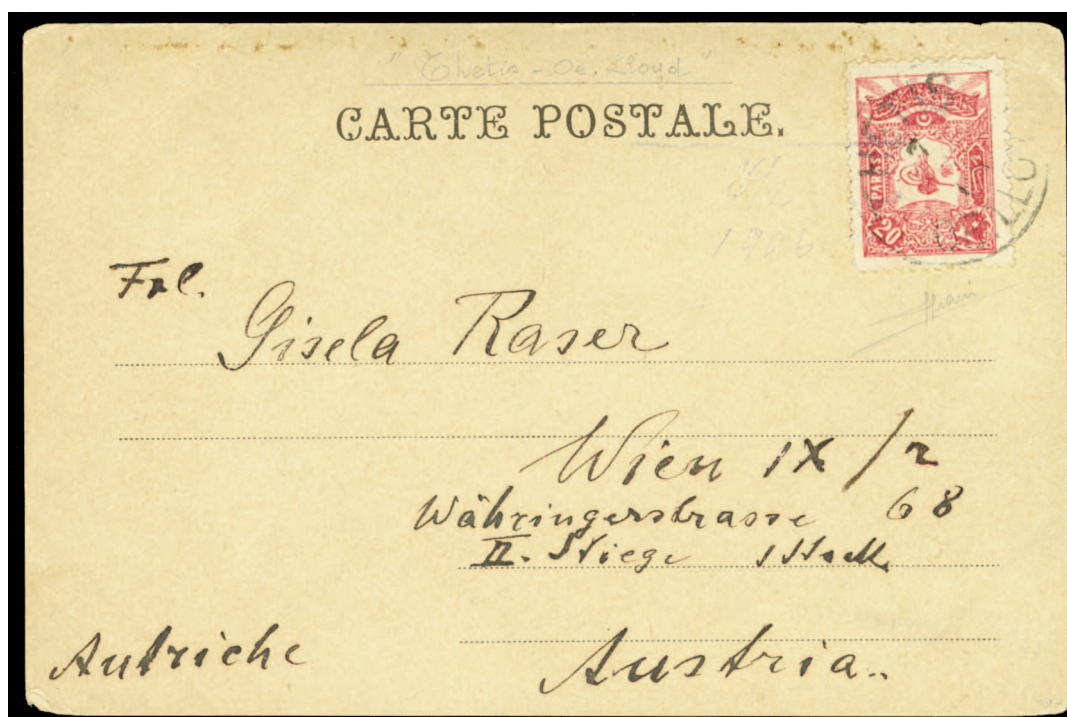 "Thetis - Oe. Lloyd"
CARTE POSTALE.
PARAS
20
1906
Frl.
Gisela Raser
Wien IX/2
Währingerstrasse 68
II. Stiege 1 Stock
Autriche
Austria..